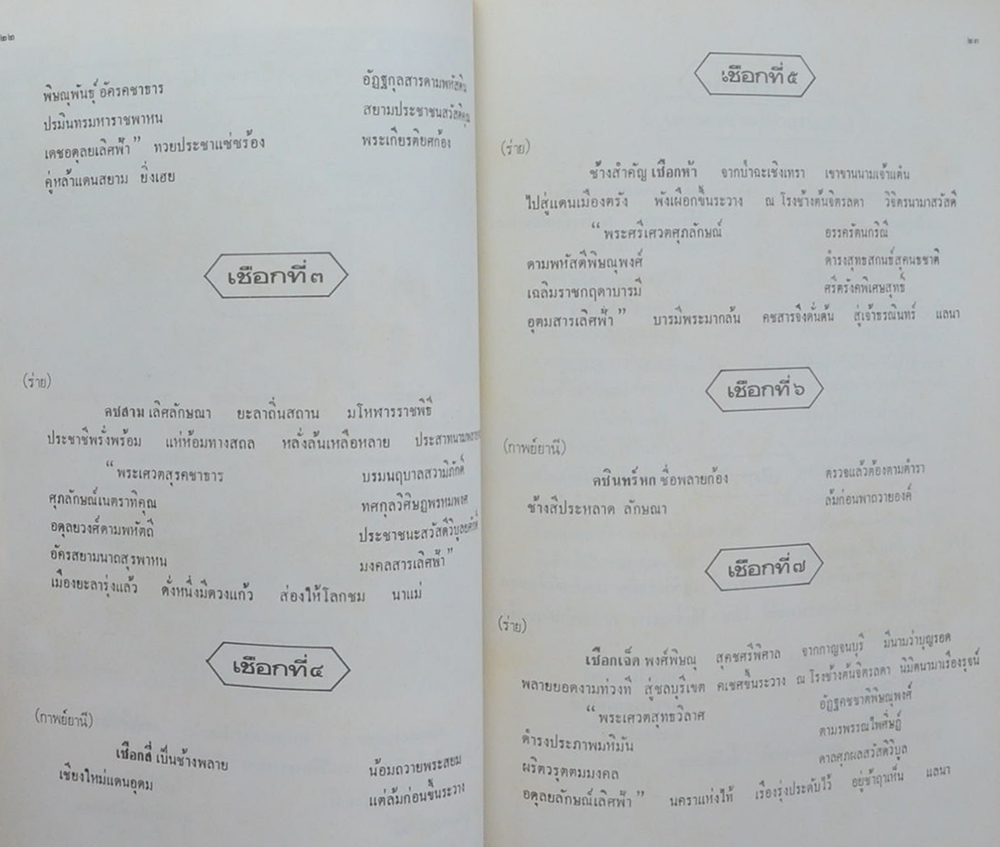 ๒๒
พิษณุพันธุ์ อัครคชาธาร อัฏฐกุลสารดามพหัสดิน
ปรมินทรมหาราชพาหน สยามประชาชนสวัสดิคุณ
เดชอดุลยเลิศฟ้า” ทวยประชาแซ่ซร้อง พระเกียรติยศก้อง
คู่หล้าแดนสยาม ยิ่งเฮย
เชือกที่ ๓
(ร่าย)
คชสาม เลิศลักษณา ยะลาถิ่นสถาน มโหฬารราชพิธี
ประชาชีพรั่งพร้อม แห่ห้อมทางสถล หลั่งล้นเหลือหลาย ประสาทนาม
“พระเศวตสุรคชาธาร บรมนฤบาลสวามิภักดิ์
ศุภลักษณ์เนตราทิคุณ ทศกุลวิศิษฏพรหมพงศ
อดุลยวงศ์ดามพหัตถี ประชาชนะสวัสดีวิบุลยศักดิ์
อัครสยามนาถสุรพาหน มงคลสารเลิศฟ้า”
เมืองยะลารุ่งแล้ว ดั่งหนึ่งมีดวงแก้ว ส่องให้โลกชม นาแม่
เชือกที่ ๔
(กาพย์ยานี)
เชือกสี่ เป็นช้างพลาย น้อมถวายพระสยม
เชียงใหม่แดนอุดม แต่ล้มก่อนขึ้นระวาง
๒๓
เชือกที่ ๕
(ร่าย)
ช้างสำคัญ เชือกห้า จากป่าฉะเชิงเทรา เขาขานนามเจ้าแต๋น
ไปสู่แดนเมืองตรัง พังเผือกขึ้นระวาง ณ โรงช้างต้นจิตรลดา วิจิตรนามาสวัสดิ์
“พระศรีเศวตศุภลักษณ์ อรรครัตนกริณี
ดามพหัสดีพิษณุพงศ์ ดำรงสุทธสกนธ์สุคนธชาติ
เฉลิมราชกฤดาบารมี ศรีตรังคพิเศษสุทธิ์
อุตมสารเลิศฟ้า” บารมีพระมากล้น คชสารจึงดั้นด้น สู่เจ้าธรณินทร์ แลนา
เชือกที่ ๖
(กาพย์ยานี)
คชินทร์หก ชื่อพลายก้อง ตรวจแล้วต้องตามตำรา
ช้างสีประหลาด ลักษณา ล้มก่อนพาถวายองค์
เชือกที่ ๗
(ร่าย)
เชือกเจ็ด พงศ์พิษณุ สุคชศรีพิศาล จากกาญจนบุรี มีนามว่าบุญรอด
พลายยอดงามท่วงที สู่ชลบุรีเขต คเชศขึ้นระวาง ณ โรงช้างต้นจิตรลดา นิมิตนามาเรืองรุจน์
“พระเศวตสุทธวิลาศ อัฏฐคชชาติพิษณุพงศ์
ดำรงประภาพมหิมัน ตามรพรรณไพศิษฎ์
ผริตวรุตตมมงคล ดาลศุภผลสวัสดิวิบุล
อดุลยลักษณ์เลิศฟ้า” นคราแห่งไท้ เรืองรุ่งประดับไว้ อยู่ช้าฤาเห็น แลนา